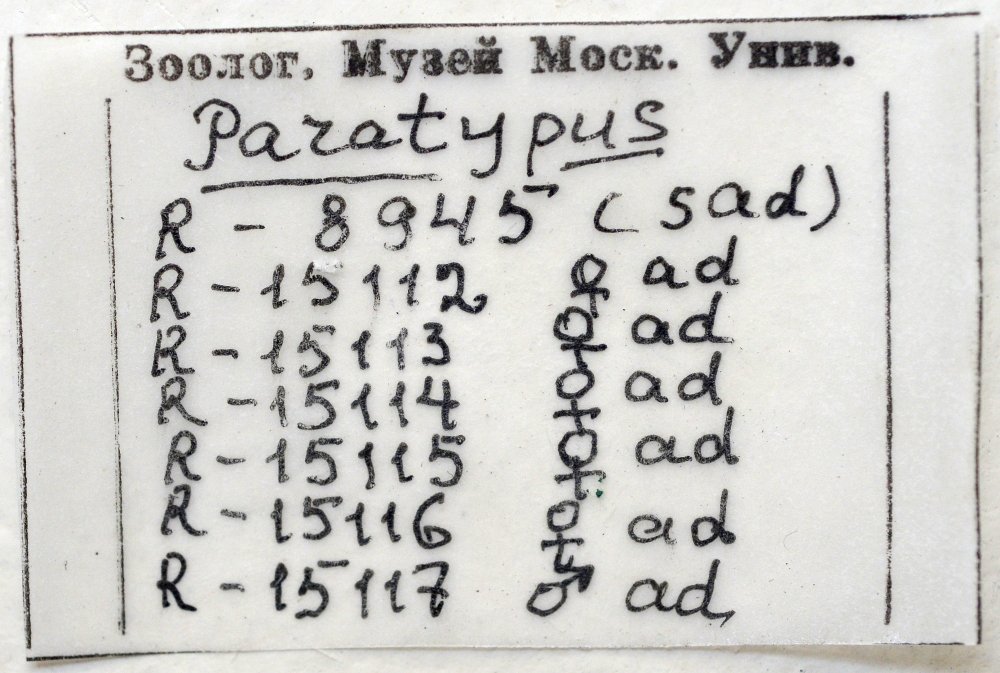 Зоолог. Музей Моск. Унив.
Paratypus
R - 8945 (sad)
R - 15112 ♀ ad
R - 15113 ♀ ad
R - 15114 ♀ ad
R - 15115 ♀ ad
R - 15116 ♀ ad
R - 15117 ♂ ad